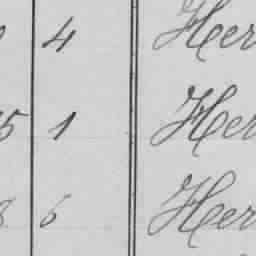 4 Her
5 1 Her
8 6 Her